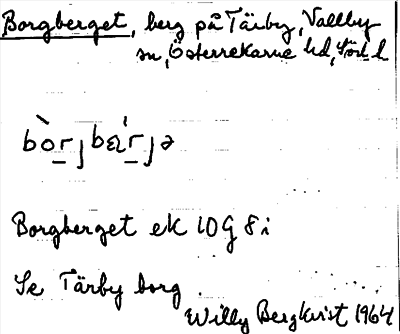 Borgberget, berg på Tärby, Vallby
sn, Österrekarne hd, Söd. l
Borgberget ek 10G 8i
Se Tärby borg
Willy Bergkvist 1964